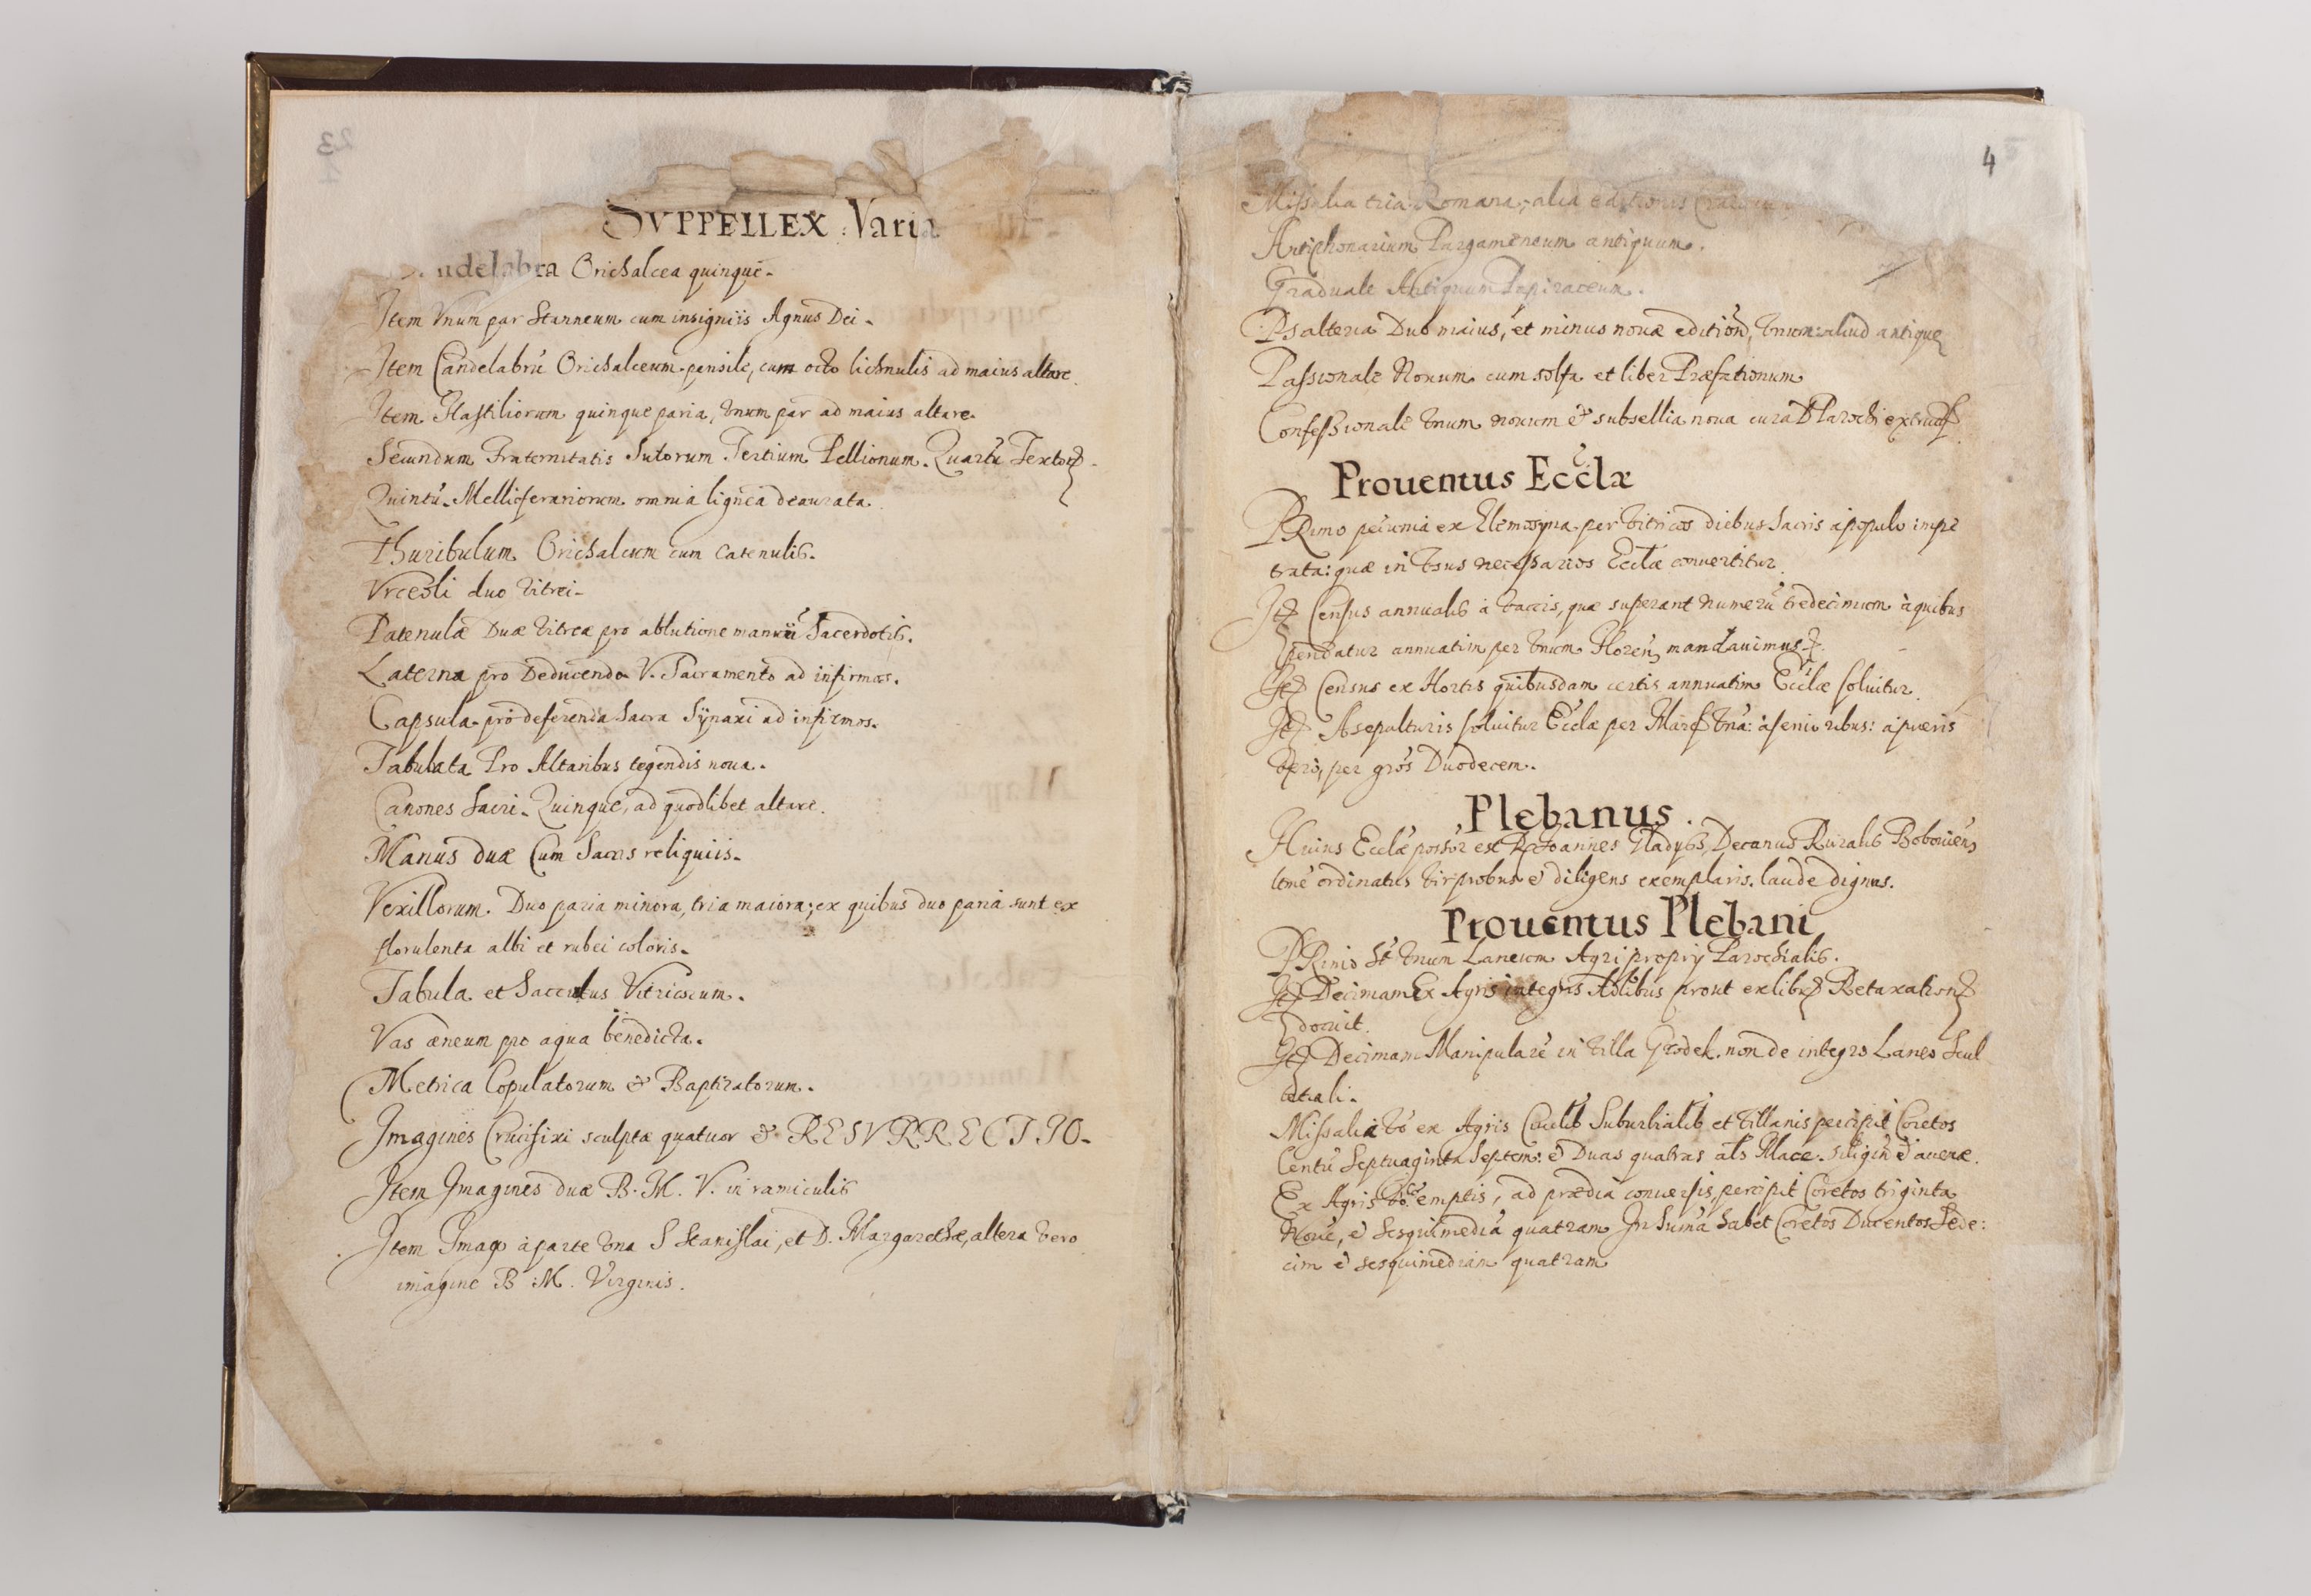 SVPPELLEX Varia
Orichalcea quinque.
Item Vnum par Stanneum cum insigniis Agnus Dei.
Item Candelabrū Orichalceum pensile, cum octo lichnulis ad maius altare.
Item Hastiliorum quinque paria, vnum par ad maius altare.
Secundum Fraternitatis Sutorum Tertium Pellionum. Quartū
Quintū. omnia lignea deaurata.
Thuribulum Orichalcum cum catenulis.
Vrceoli duo vitrei.
Patenulæ Duæ vitreæ pro ablutione manuū Sacerdotis.
Laterna pro Deducendo V. Sacramento ad infirmos.
Capsula pro deferenda Sacra Sÿnaxi ad infirmos.
Tabulata Pro Altaribus tegendis noua.
Canones Sacri. Quinque, ad quodlibet altare.
Manus duæ Cum Sacris reliquiis.
Vexillorum. Duo paria minora, tria maiora; ex quibus duo paria sunt ex
florulenta albi et rubei coloris.
Tabula et Vitricorum.
Vas æneum pro aqua benedicta.
Metrica Copulatorum & Baptizatorum.
Imagines Crucifixi sculptæ quatuor & RESVRRECTIO.
Item Imagines duæ B. M. V. in ramiculis
Item Imago à parte vna S Stanislai, et D. Margarethæ, altera vero
imagine B M. Virginis.
4
Missalia tria Romana, alia editionis
Antiphonarium Pargameneum antiquum.
Graduale Antiquum Papiraceum.
Psalteria Duo maius, et minus nouæ edition, vnum aliud antique
Passionale Nouum cum solfa et liber Præfationum
Confessionale vnum nouum & subsellia noua cura D Parochi
Prouentus Ecclæ
PRimo pecunia ex Elemosyna per vitricos diebus Sacris a populo impe
trata: quæ in vsus necessarios Ecclæ conuertitur.
Census annualis à vaccis, quæ superant numerū tredecimum à quibus
pendatur annuatim per vnum mandauimus
Census ex Hortis quibusdam certis annuatim Ecclæ soluitur.
A sepulturis soluitur Ecclæ per vnā: a senioribus: a pueris
vero, per gros Duodecem.
Plebanus.
Huius Ecclæ possor est Joannes Decanus Ruralis
ltmē ordinatus vir probus & diligens exemplaris. laude dignus.
Prouentus Plebani
PRimo vnum Laneum Agri proprij Parochialis.
Decimam Ex Agris integris prout ex
docuit.
Decimam Manipularē in villa Grodek. non de integro Laneo Scul
tetali.
Missalia vō ex Agris Ciuilib Suburbialib et villanis percipit Coretos
Centū Septuaginta Septem: & Duas quatras als Miace. siligin & auenæ.
Ex Agris emptis, ad prædia conuersis, percipit Coretos triginta
Nouē, & sesquimediā quatram In Summa habet Coretos Ducentos Sede:
cim & sesquimediam quatram